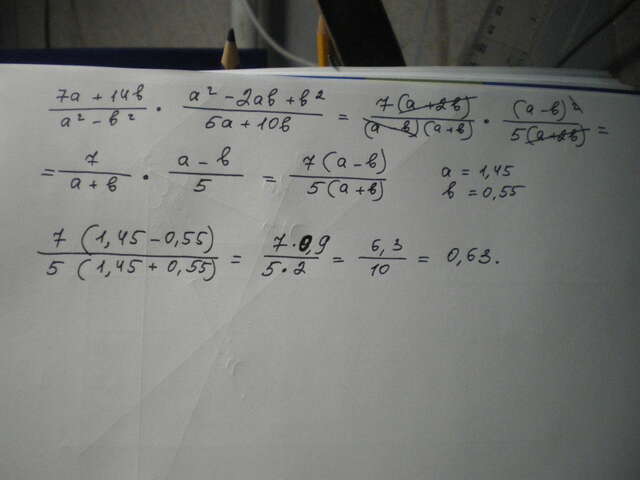 7a + 14b / a² - b² · a² - 2ab + b² / 5a + 10b = 7(a + 2b) / (a - b)(a + b) · (a - b)² / 5(a + 2b) =
= 7 / a + b · a - b / 5 = 7(a - b) / 5(a + b) a = 1,45
b = 0,55
7 (1,45 - 0,55) / 5 (1,45 + 0,55) = 7 · 0,9 / 5 · 2 = 6,3 / 10 = 0,63.